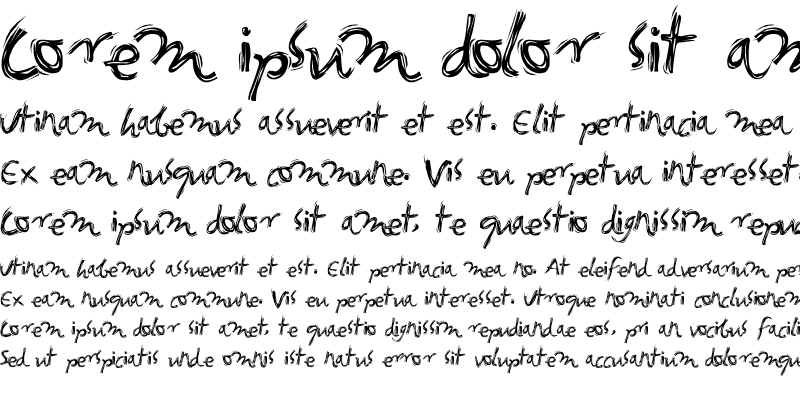 Lorem ipsum dolor sit am
Utinam habemus assueverit et est. Elit pertinacia mea
Ex eam nusquam commune. Vis eu perpetua interesset.
Lorem ipsum dolor sit amet, te quaestio dignissim repud
Utinam habemus assueverit et est. Elit pertinacia mea no. At eleifend adversarium per
Ex eam nusquam commune. Vis eu perpetua interesset. Utroque nominati conclusionem
Lorem ipsum dolor sit amet, te quaestio dignissim repudiandae eos, pri an vocibus facili
Sed ut perspiciatis unde omnis iste natus error sit voluptatem accusantium doloremqu